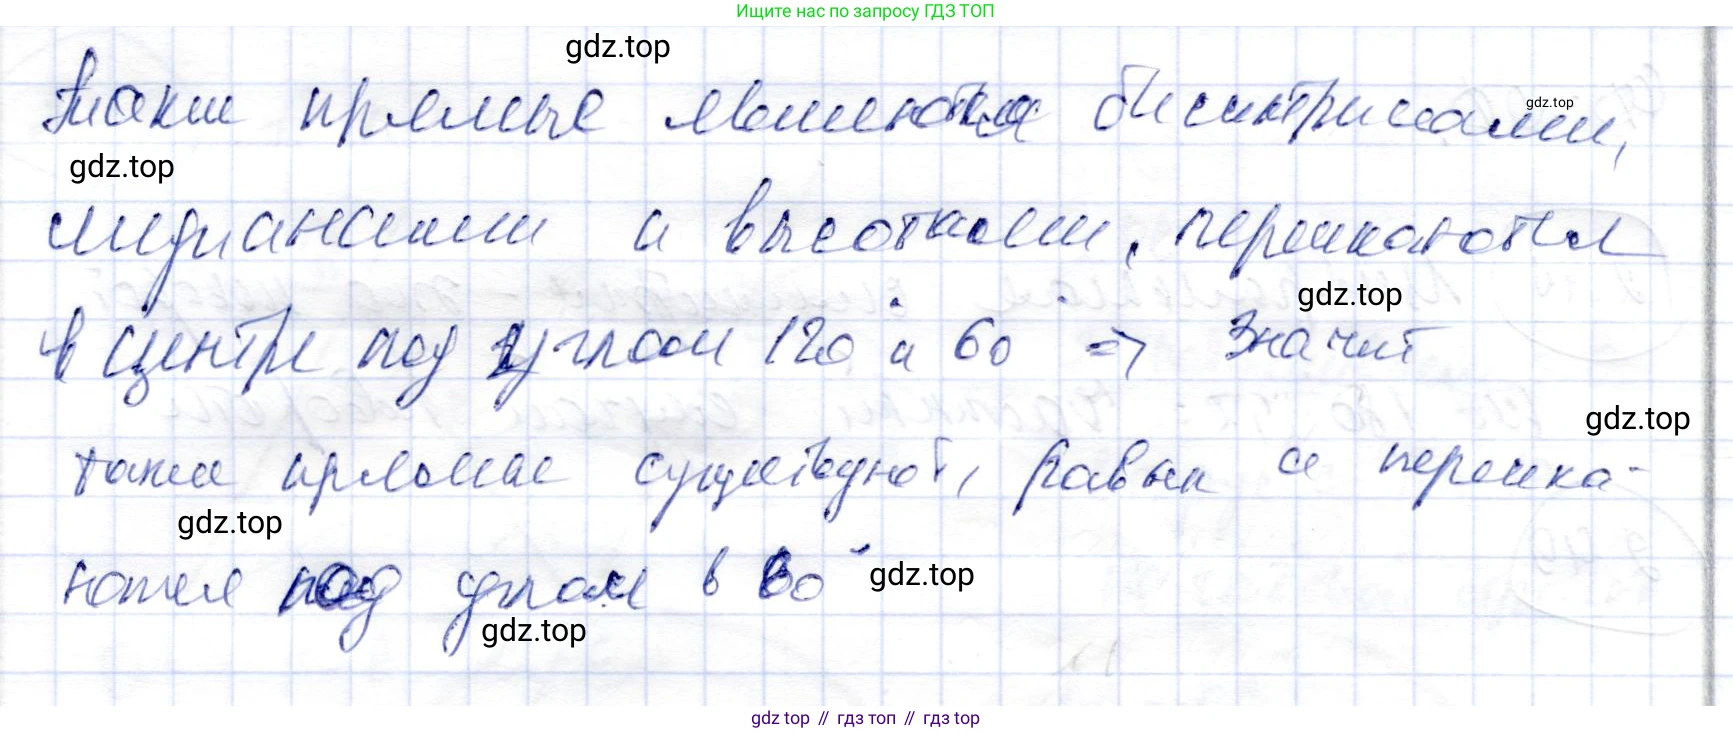 Ищите нас по запросу ГДЗ ТОП
gdz.top
Такие прямые являются биссектрисами,
gdz.top
gdz.top
медианами и высотами, пересекаются
gdz.top
в центре под углом 120° и 60° => Значит
gdz.top
такие прямые существуют, равны и пересека-
gdz.top
ются под углом в 60°
gdz.top
gdz.top
gdz top // гдз топ // гдз top